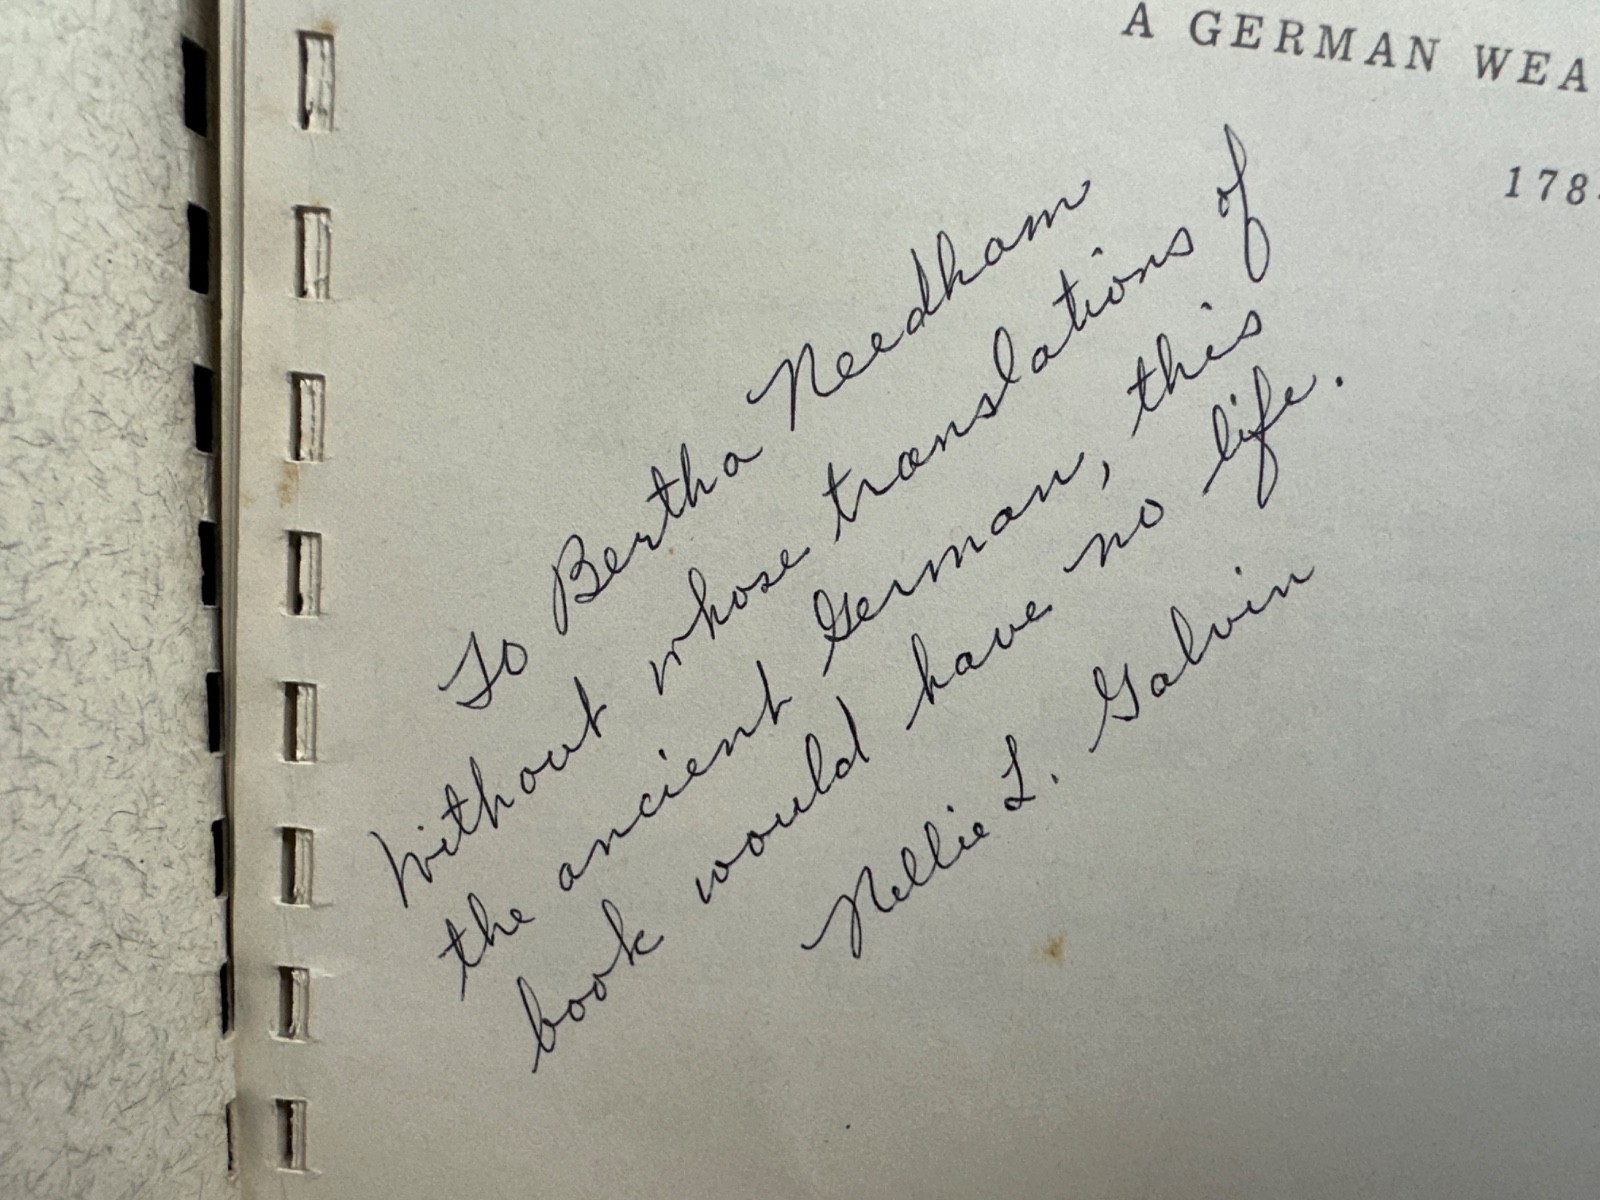 A GERMAN WEA
178
To Bertha Needham
Without whose translations of
the ancient German, this
book would have no life.
Nellie L. Galvin